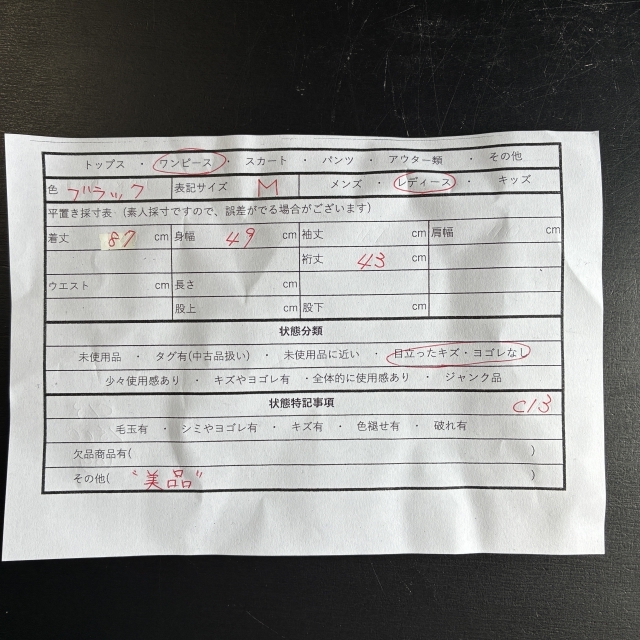 トップス ・ ワンピース ・ スカート ・ パンツ ・ アウター類 ・ その他
色 ブラック 表記サイズ M メンズ ・ レディース ・ キッズ
平置き採寸表 (素人採寸ですので、誤差がでる場合がございます)
着丈 87 cm 身幅 49 cm 袖丈 cm 肩幅 cm
裄丈 43 cm
ウエスト cm 長さ cm
股上 cm 股下 cm
状態分類
未使用品 ・ タグ有(中古品扱い) ・ 未使用品に近い ・ 目立ったキズ・ヨゴレなし
少々使用感あり ・ キズやヨゴレ有 ・全体的に使用感あり ・ ジャンク品
状態特記事項 C13
毛玉有 ・ シミやヨゴレ有 ・ キズ有 ・ 色褪せ有 ・ 破れ有
欠品商品有( )
その他( "美品" )